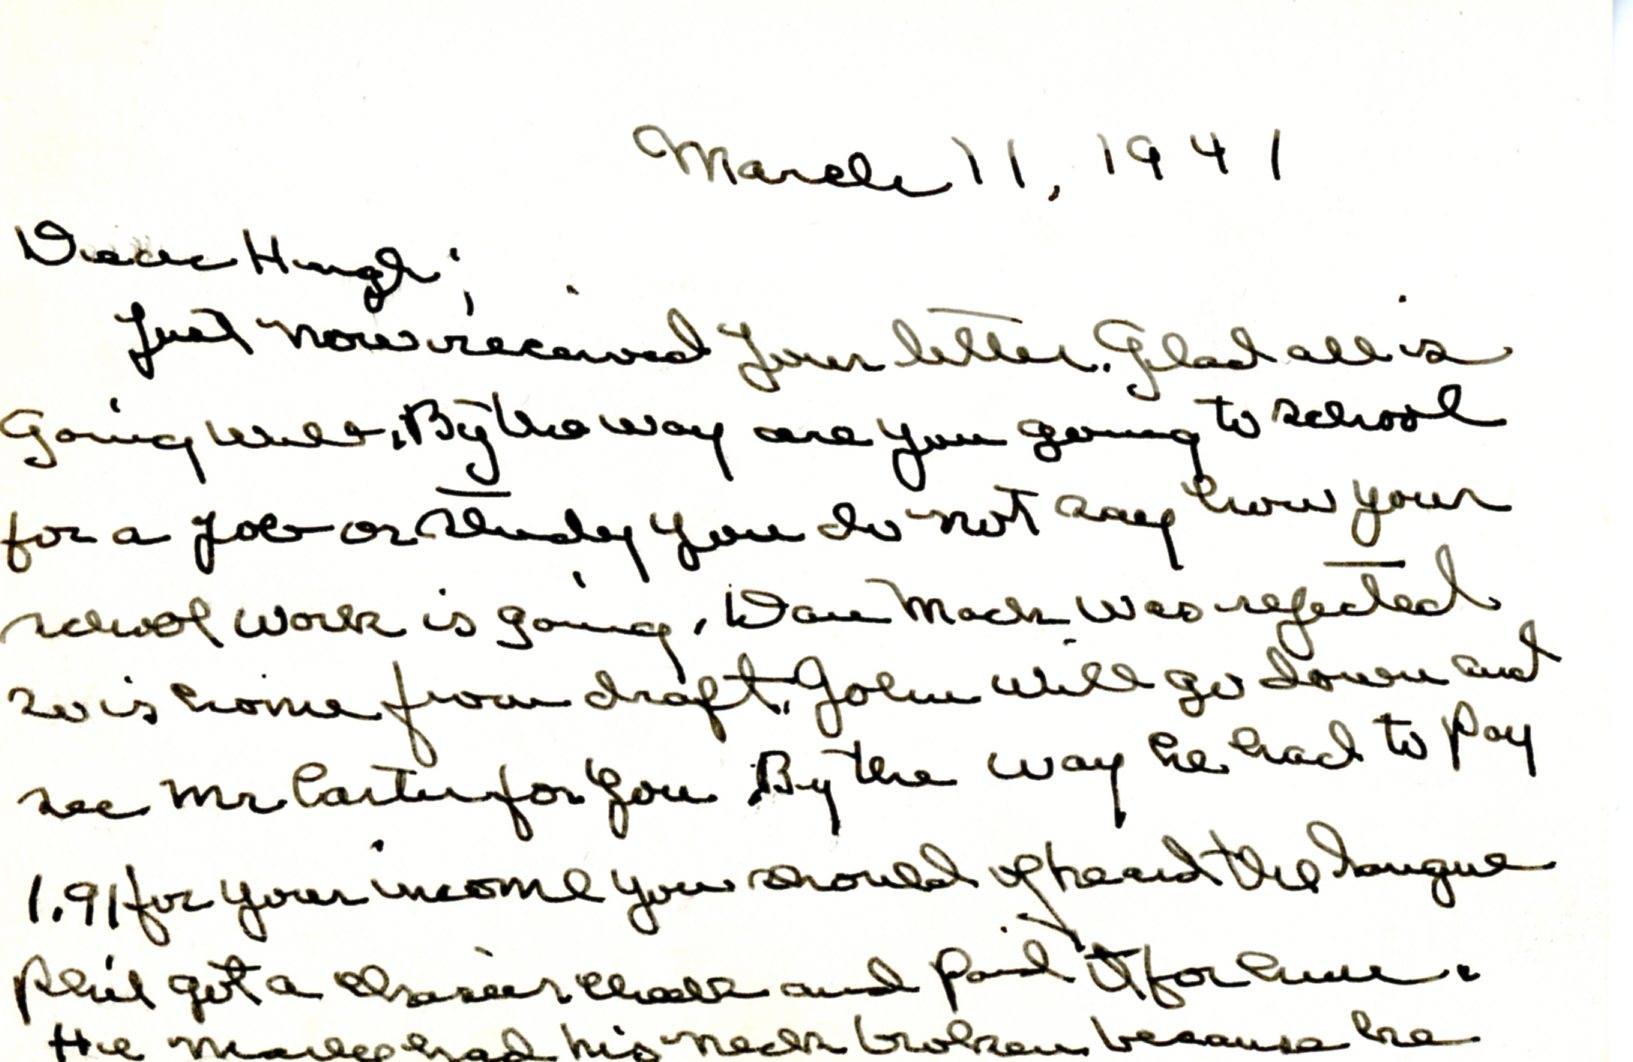 March 11, 1941
Dear Hugh;
Just now received your letter. Glad all is
Going well. By the way are you going to school
for a job or study you do not say how your
school work is going, Dave Mack was rejected
so is home from draft. John will go down and
see Mr Carter for you. By the way he had to pay
1.91 for your income you should of heard the harangue
Phil got a cashiers check and paid it for him.
He had his neck broken because he